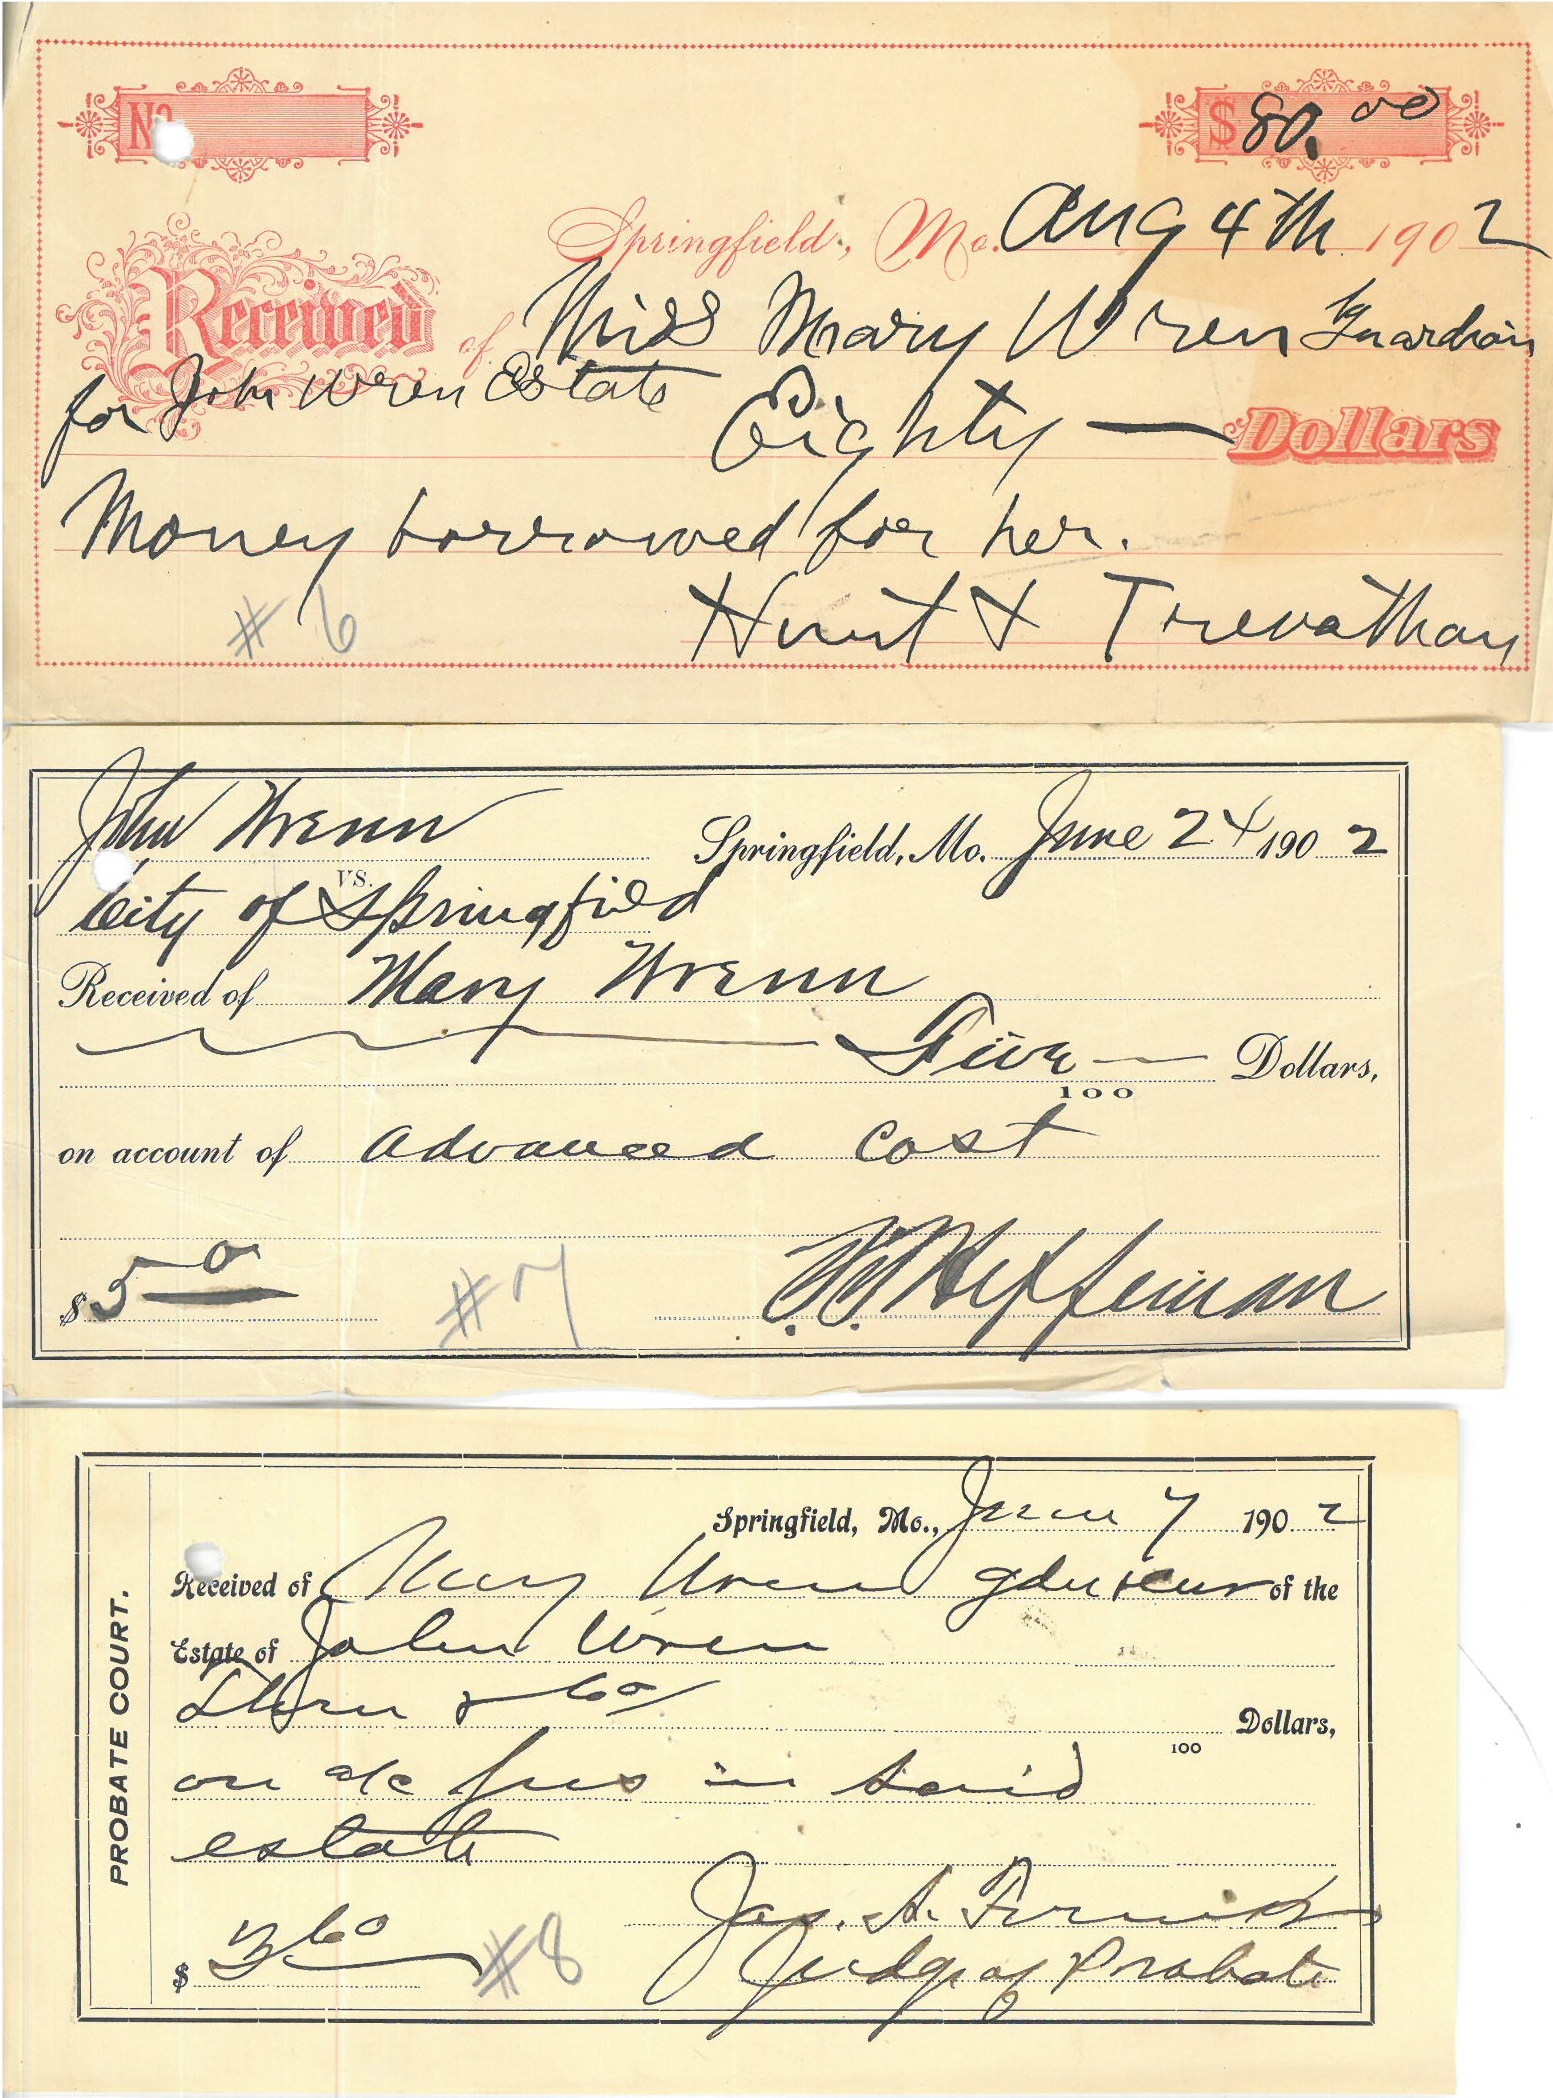 No
$ 80.00
Springfield, Mo. Aug 4th 1902
Received of Miss Mary Wren Guardian
for John Wren Estate Eighty — Dollars
Money borrowed for her.
# 6 Hunt & Trevathan
John Wrenn
Springfield, Mo. June 24 1902
vs.
City of Springfield
Received of Mary Wrenn
Five — Dollars,
100
on account of advanced cost
$ 5 00 #7 Heffernan
PROBATE COURT.
Springfield, Mo., June 7 1902
Received of Mary Wren of the
Estate of John Wren
Three & 60/ Dollars,
100
on a/c fees in said
estate
$ 3 60 #8 Jas. A.
Judge of Probate